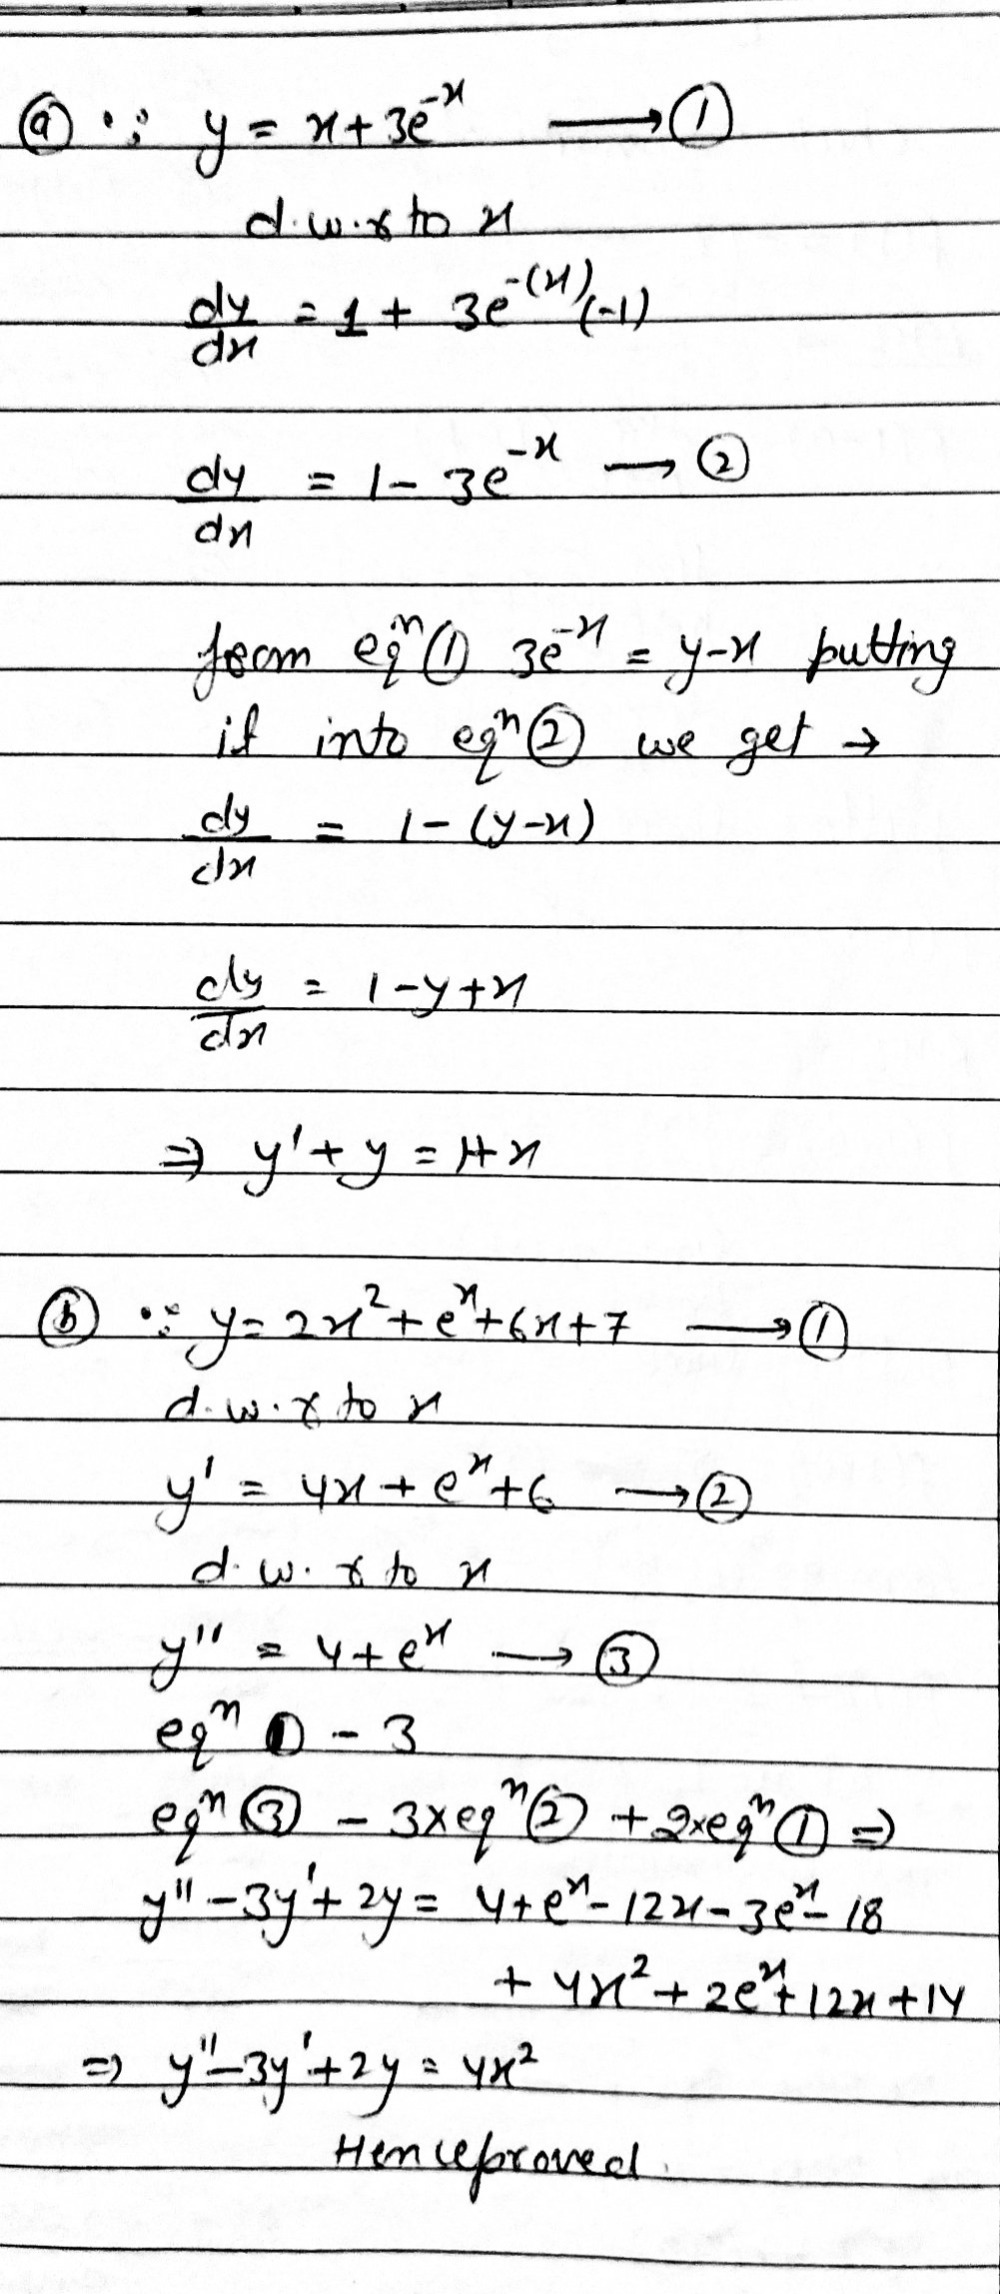 ⓐ ∵ y = x + 3e^{-x} ⟶ ①
d.w.r to x
dy/dx = 1 + 3e^{-(x)}(-1)
dy/dx = 1 - 3e^{-x} → ②
from eqⁿ ① 3e^{-x} = y-x putting
it into eqⁿ ② we get →
dy/dx = 1 - (y-x)
dy/dx = 1 - y + x
⇒ y' + y = 1 + x
ⓑ ∵ y = 2x² + e^x + 6x + 7 ⟶ ①
d.w.r to x
y' = 4x + e^x + 6 ⟶ ②
d.w.r to x
y'' = 4 + e^x ⟶ ③
eqⁿ ① - 3
eqⁿ ③ - 3×eqⁿ ② + 2×eqⁿ ① ⇒
y'' - 3y' + 2y = 4 + e^x - 12x - 3e^x - 18
+ 4x² + 2e^x + 12x + 14
⇒ y'' - 3y' + 2y = 4x²
Hence proved.